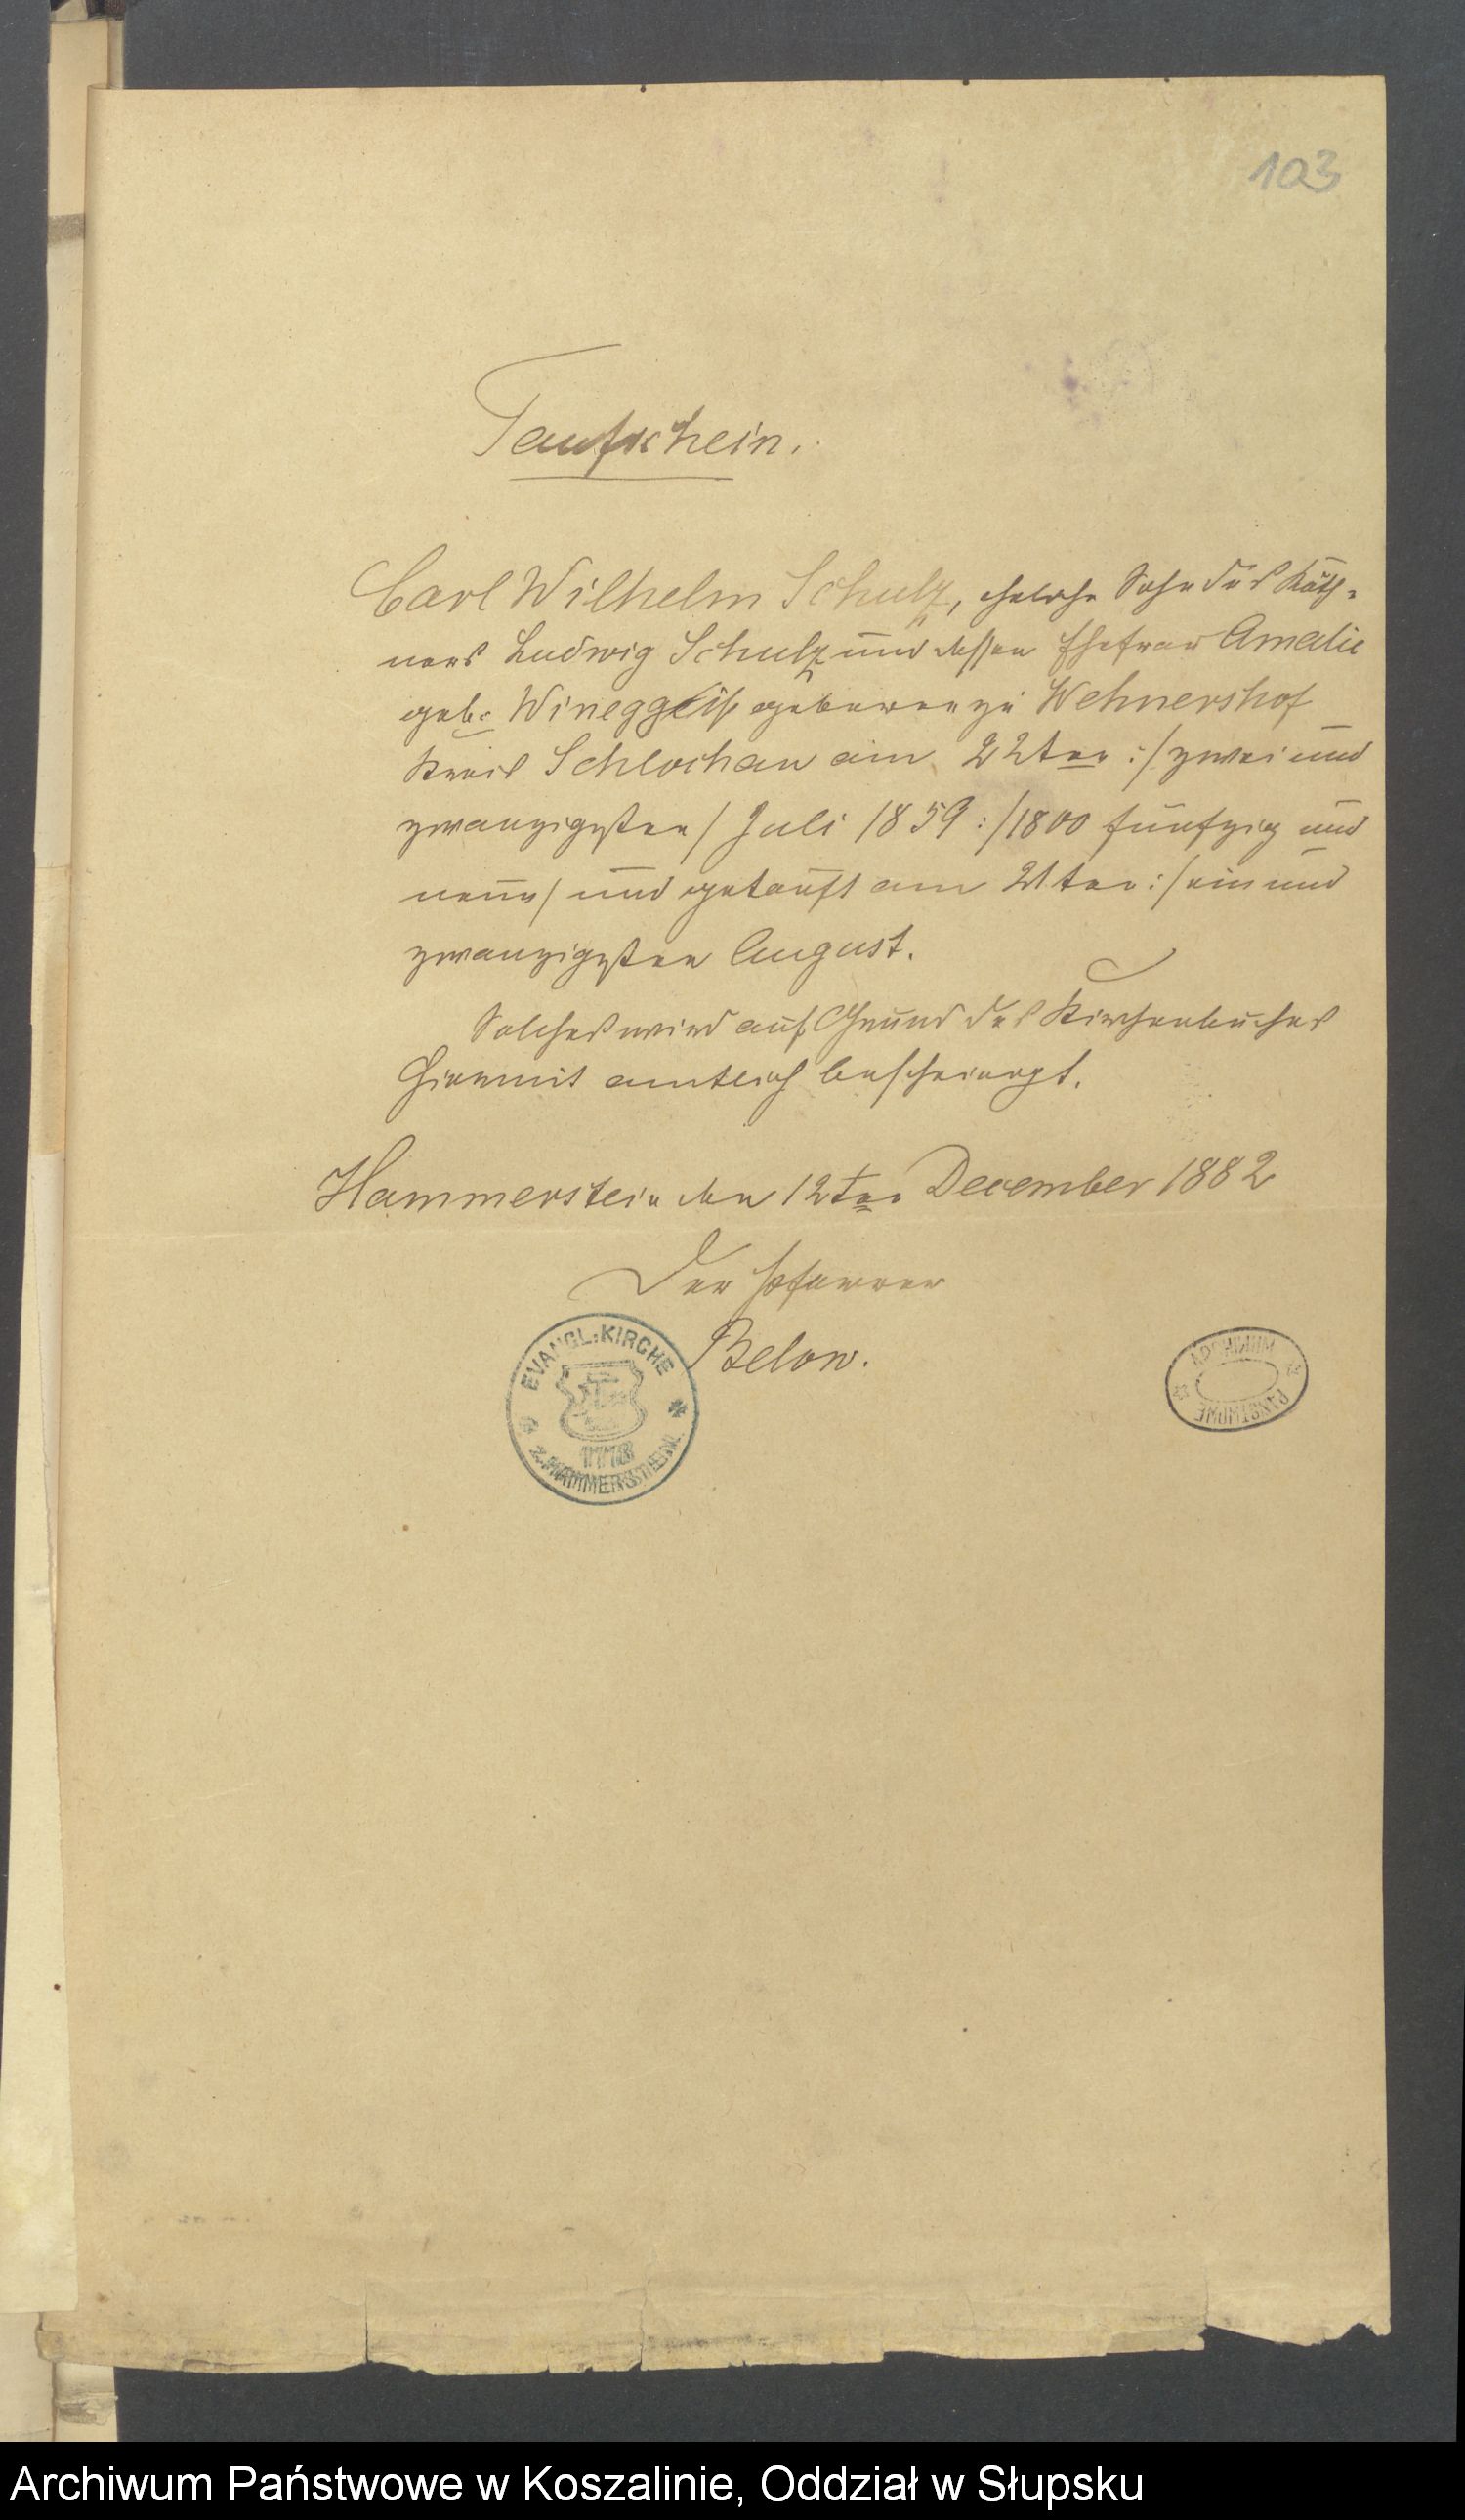 103
Taufschein.
Carl Wilhelm Schulz, eheliche Sohn des Käth-
ners Ludwig Schulz und dessen Ehefrau Amalie
geb. geboren zu Wehnershof
Kreis Schlochau am 22ten :/ zwei und
zwanzigsten / Juli 1859 :/ 1800 fünfzig und
neun / und getauft am 21ten :/ ein und
zwanzigsten August.
Solches wird auf Grund des Kirchenbuches
hiermit amtlich bescheinigt.
Hammerstein den 12ten December 1882
Der Pfarrer
Below.
EVANGL. KIRCHE
1773
Z. HAMMERSTEIN.
ARCHIWUM
PAŃSTWOWE
Archiwum Państwowe w Koszalinie, Oddział w Słupsku